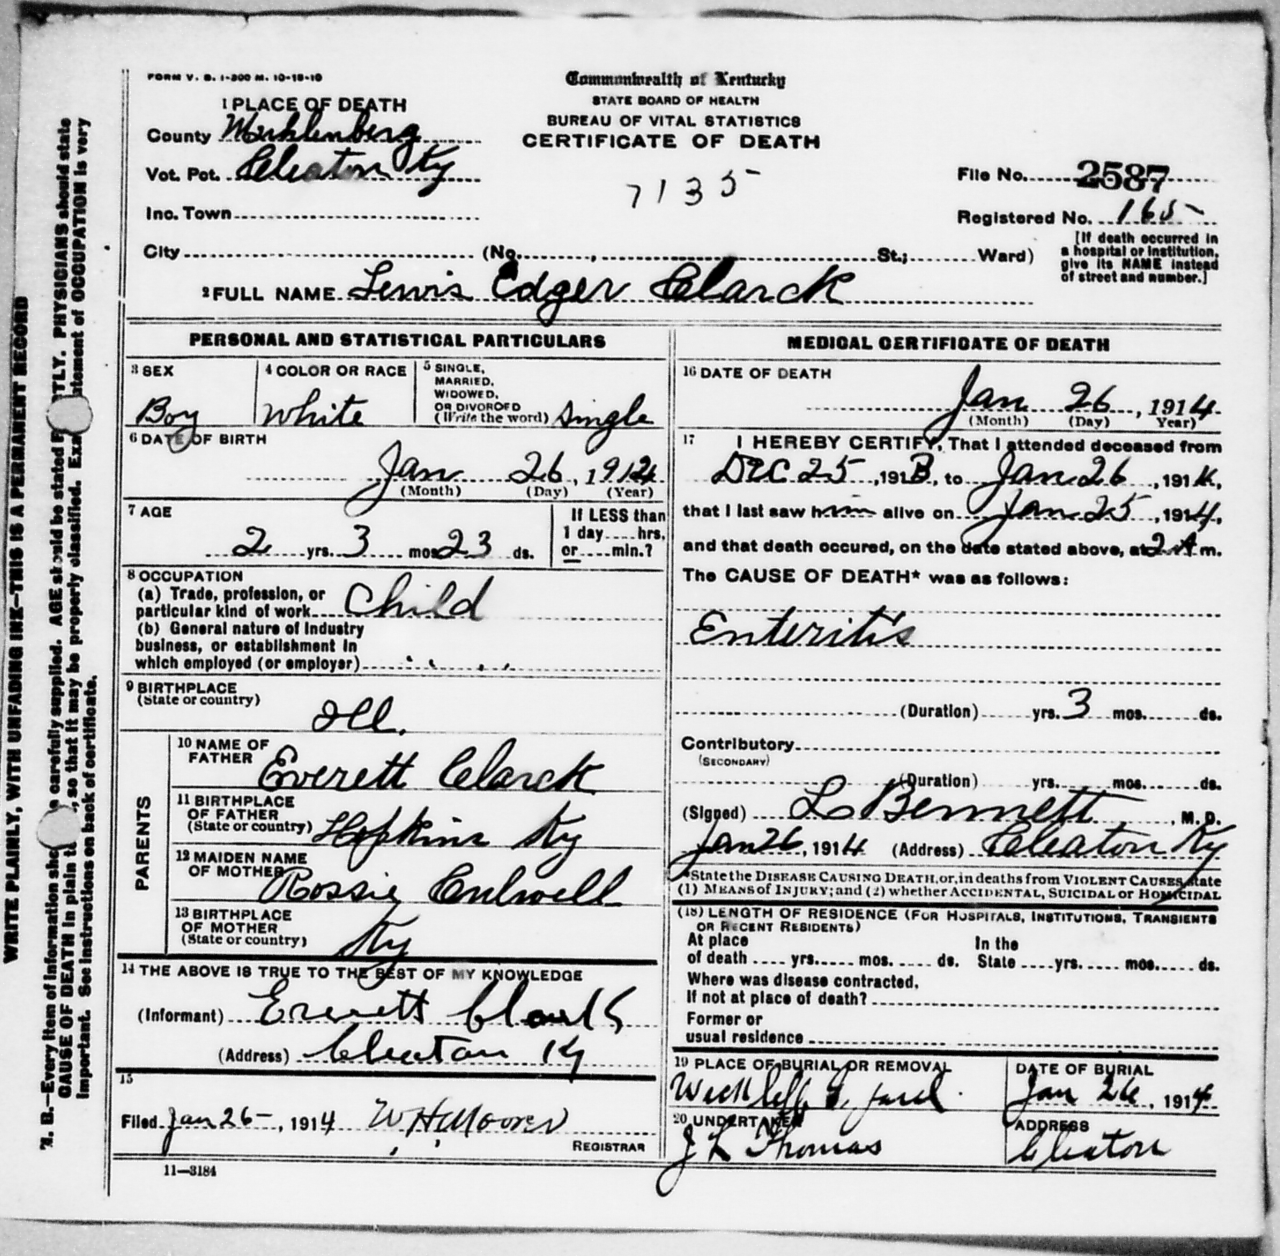 FORM V. S. 1-300 M. 10-18-10
Commonwealth of Kentucky
STATE BOARD OF HEALTH
BUREAU OF VITAL STATISTICS
CERTIFICATE OF DEATH
1 PLACE OF DEATH
County Muhlenberg
Vot. Pct. Cleaton Ky
Inc. Town
City (No. St.; Ward)
7135
File No. 2587
Registered No. 165
[If death occurred in
a hospital or institution,
give its NAME instead
of street and number.]
2 FULL NAME Lewis Edger Clarck
PERSONAL AND STATISTICAL PARTICULARS
3 SEX
Boy
4 COLOR OR RACE
White
5 SINGLE,
MARRIED,
WIDOWED,
OR DIVORCED
(Write the word) Single
6 DATE OF BIRTH
Jan 26, 1912
(Month) (Day) (Year)
7 AGE
2 yrs. 3 mos 23 ds.
If LESS than
1 day....hrs.
or.....min.?
8 OCCUPATION
(a) Trade, profession, or
particular kind of work Child
(b) General nature of Industry
business, or establishment in
which employed (or employer)
9 BIRTHPLACE
(State or country)
Ill.
PARENTS
10 NAME OF
FATHER Everett Clarck
11 BIRTHPLACE
OF FATHER
(State or country) Hopkins Ky
12 MAIDEN NAME
OF MOTHER Rossie Culwell
13 BIRTHPLACE
OF MOTHER
(State or country) Ky
14 THE ABOVE IS TRUE TO THE BEST OF MY KNOWLEDGE
(Informant) Everett Clark
(Address) Cleaton Ky
15
Filed Jan 26-, 1914 W H Moores
REGISTRAR
11—3184
MEDICAL CERTIFICATE OF DEATH
16 DATE OF DEATH
Jan 26, 1914
(Month) (Day) Year)
17 I HEREBY CERTIFY, That I attended deceased from
Dec 25, 1913, to Jan 26, 1914,
that I last saw him alive on Jan 25, 1914,
and that death occured, on the date stated above, at 2 A m.
The CAUSE OF DEATH* was as follows:
Enteritis
(Duration) yrs. 3 mos. ds.
Contributory
(SECONDARY)
(Duration) yrs. mos. ds.
(Signed) L Bennett, M.D.
Jan 26, 1914 (Address) Cleaton Ky
*State the DISEASE CAUSING DEATH, or, in deaths from VIOLENT CAUSES, state
(1) MEANS of INJURY; and (2) whether ACCIDENTAL, SUICIDAL or HOMICIDAL
(18) LENGTH OF RESIDENCE (FOR HOSPITALS, INSTITUTIONS, TRANSIENTS
OR RECENT RESIDENTS)
At place
of death yrs. mos. ds.
In the
State yrs. mos. ds.
Where was disease contracted,
If not at place of death?
Former or
usual residence
19 PLACE OF BURIAL OR REMOVAL
DATE OF BURIAL
Jan 26, 1914
20 UNDERTAKER
J L Thomas
ADDRESS
Cleaton
WRITE PLAINLY, WITH UNFADING INK—THIS IS A PERMANENT RECORD
N. B.—Every item of information sho e carefully supplied. AGE should be stated E TLY. PHYSICIANS should state
CAUSE OF DEATH in plain t , so that it may be properly classified. Exa tatement of OCCUPATION is very
important. See instructions on back of certificate.